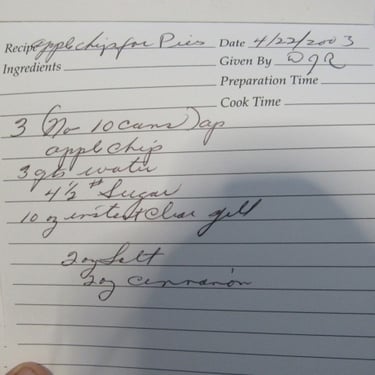 Recipe apple chips for Pies Date 4/22/2003
Ingredients Given By DJR
Preparation Time
Cook Time
3 (No 10 cans) ap
apple chip
3 qts water
4½ # Sugar
10 oz instant Clear gell
2oz Salt
2oz cennamon